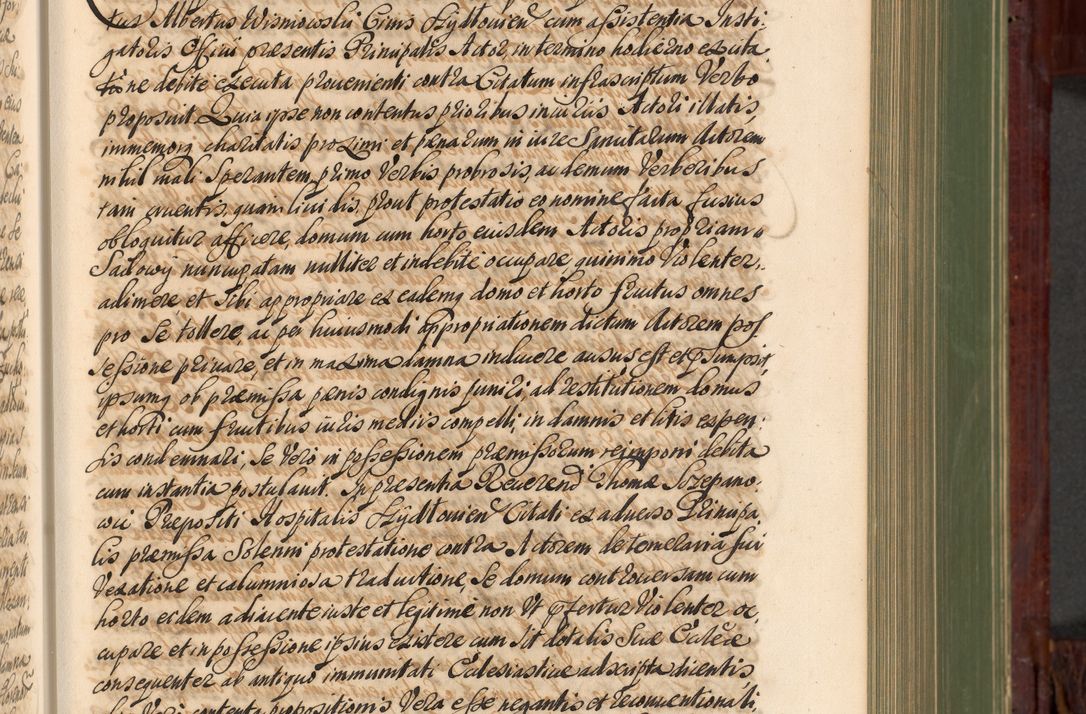 tus Albertus Wisniowski Civis Szydlovien cum assistentia Insti-
gatoris Officii præsentis Principalis Actor in termino hodierno ex cita
tione debite executa provenienti contra Citatum infrascriptum Verbo
proposuit Quia ipse non contentus prioribus iniuriis Actori illatis,
immemorq charitatis proximi et pænarum in iure Sancitarum Actorem
nihil mali Sperantem, primo Verbis probrosis, ac demum Verberibus
tam cruentis, quam lividis, prout protestatio eo nomine facta fusius
obloquitur afficere, domum cum horto eiusdem Actoris propriam
Sadowy nuncupatam nulliter et indebite occupare quinimo Violenter,
adimere et Sibi appropriare ex eademq domo et horto fructus omnes
pro Se tollere, ac per huiusmodi appropriationem dictum Actorem pos
sessione privare, et in maxima damna inducere ausus est et præsumpsit
ipsumq ob præmissa pænis condignis puniri, ad restitutionem domus
et horti cum fructibus iuris mediis compelli, in damnis et litis expen:
sis condemnari, Se Vero in possessionem præmissorum reimponi debita
cum instantia postulavit. In præsentia Reverend Thomæ Szczepano-
wic Præpositi Hospitalis Szydlovien Citati ex adverso Principa
lis præmissa Solenni protestatione contra Actorem de temeraria sui
Vexatione et calumniosa traductione, Se domum controversam cum
horto eidem adiacente iuste et legitime non Ut præfertur Violenter oc
cupare et in possessione ipsius existere cum Sit dotalis Suæ Ecclæ
consequenter ab antiquo immunitati Ecclesiasticæ adscripta dicentis
contenta propositionis Vera esse negantis et reconventionali,